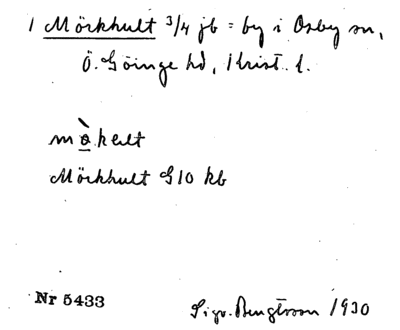 1 Mörkhult 3/4 jb = by i Osby sn,
Ö. Göinge hd, Krist. l.
mò̱kelt
Mörkhult G10 kb
Nr 5433 Sigv. Bengtsson 1930